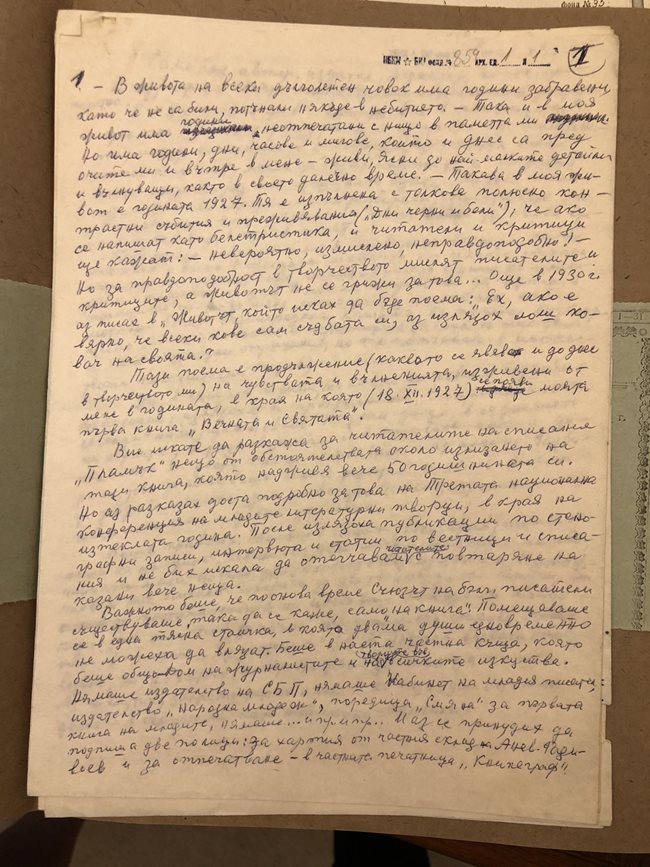 фонд № 35
НБКМ ☆ БИА фонд № 859 арх. ед. 1 л. 1
1
1 – В живота на всеки дълголетен човек има години забравени,
като че не са били, потънали някъде в небитието. – Така и в моя
живот има години неотпечатани с нищо в паметта ми
Но има години, дни, часове и мигове, които и днес са пред
очите ми и вътре в мене – живи, ясни до най-малките детайли
и вълнуващи, както в своето далечно време. – Такава в моя жи-
вот е годината 1927. Тя е изпълнена с толкова полюсно кон-
трастни събития и преживявания („Дни черни и бели“), че ако
се напишат като белетристика, и читатели и критици
ще кажат: – невероятно, измислено, неправдоподобно! –
Но за правдоподобност в творчеството мислят писателите и
критиците, а животът не се грижи за това... Още в 1930 г.
аз писах в „Животът, който исках да бъде поема: „Ех, ако е
вярно, че всеки кове сам съдбата си, аз излязох лош ко-
вач на своята.“
Тази поема е продължение (каквото се явява и до днес
в творчеството ми) на чувствата и вълненията, изживени от
мене в годината, в края на която (18.XII.1927) се появи моята
първа книга „Вечната и Святата“.
Вие искате да разкажа за читателите на списание
„Пламък“ нещо от обстоятелствата около излизането на
тази книга, която надживя вече 50 годишнината си.
Но аз разказах доста подробно за това на Третата национална
конференция на младите литературни творци, в края на
изтеклата година. После излязоха публикации по стено-
графни записи, интервюта и статии по вестници и списа-
ния и не бих искала да отегчавам читателите с повтаряне на
казани вече неща.
Важното беше, че по онова време Съюзът на бълг. писатели
съществуваше, така да се каже, само „на книга“. Помещаваше
се в една тясна стаичка, в която двама души едновременно
не можеха да влязат. Беше в наета частна къща, която
беше общ дом на журналистите и на творците във всичките изкуства.
Нямаше издателство на СБП, нямаше Кабинет на младия писател,
издателство „Народна младеж“, поредица „Смяна“ за първата
книга на младите, нямаше... и пр. и пр... И аз се принудих да
подпиша две полици: за хартия от частния склад на Анев-Ради-
воев и за отпечатване – в частната печатница „Книпеграф“.